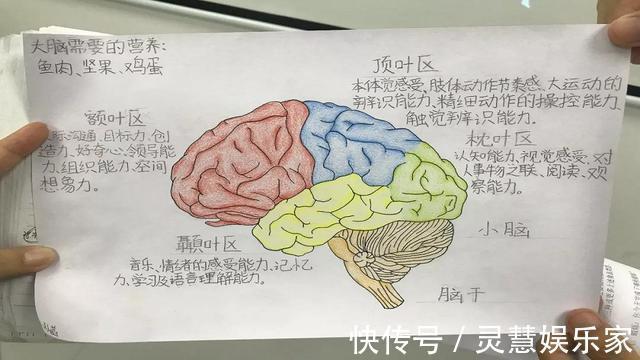 大脑需要的营养:
鱼肉、坚果、鸡蛋
顶叶区
本体觉感受、肢体动作节奏感、大运动的
判识能力、精细动作的操控能力、
触觉判识能力。
额叶区
际沟通、目标力、创
造力、好奇心、领导能
力、组织能力、空间
想象力。
枕叶区
认知能力、视觉感受、对
人事物之联、阅读、观
察能力。
颞叶区
音乐、情绪的感受能力、记忆
力、学习及语言理解能力。
小脑
脑干
快传号/灵慧娱乐家